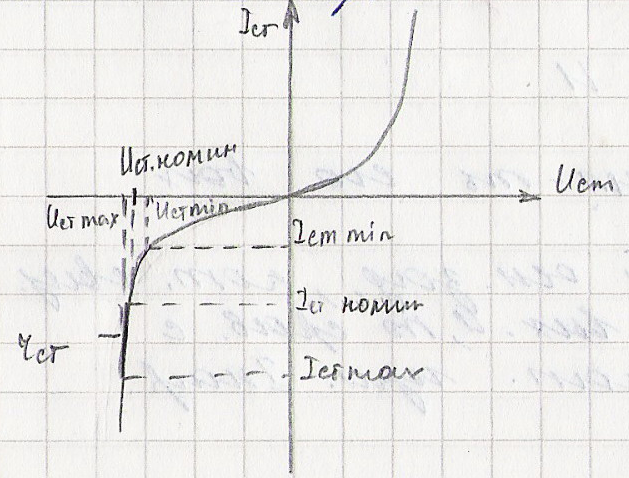 Iст
Uст.номин
Uст
Uст max
Uст min
Iст min
Iст номин
rст
Iст max